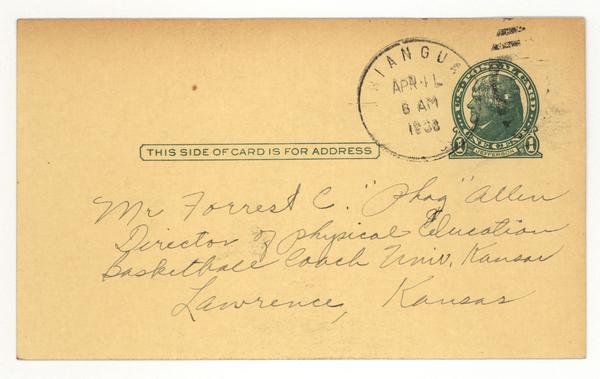 TRIANGU
APR 11
6 AM
1938
U.S. POSTAL CARD
ONE CENT
1 JEFFERSON 1
THIS SIDE OF CARD IS FOR ADDRESS
Mr Forrest C. "Phog" Allen
Director of Physical Education
Basketball Coach Univ. Kansas
Lawrence, Kansas